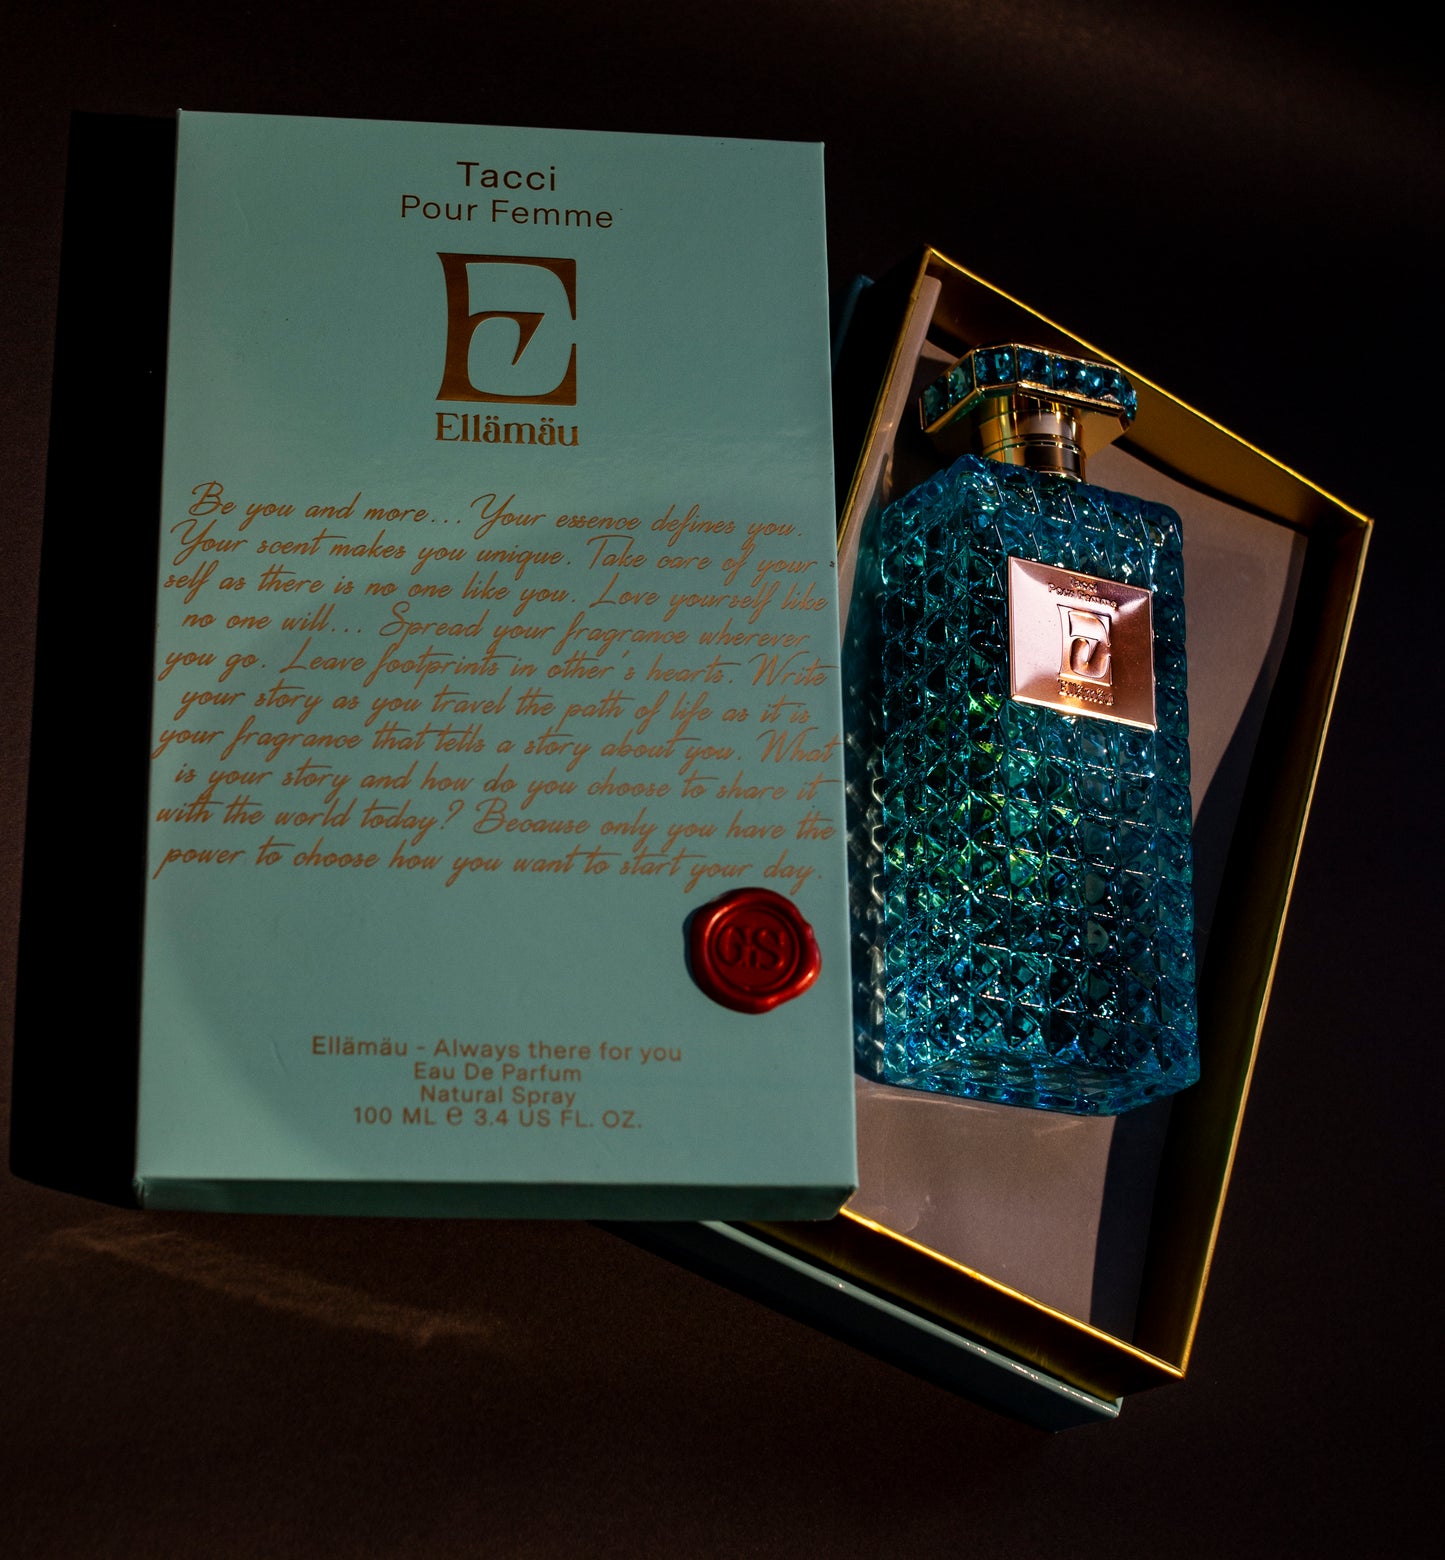 Tacci
Pour Femme
Ellämäu
Be you and more... Your essence defines you.
Your scent makes you unique. Take care of your -
self as there is no one like you. Love yourself like
no one will... Spread your fragrance wherever
you go. Leave footprints in other's hearts. Write
your story as you travel the path of life as it is
your fragrance that tells a story about you. What
is your story and how do you choose to share it
with the world today? Because only you have the
power to choose how you want to start your day.
GS
Ellämäu - Always there for you
Eau De Parfum
Natural Spray
100 ML ℮ 3.4 US FL. OZ.
Tacci
Pour Femme
Ellämäu